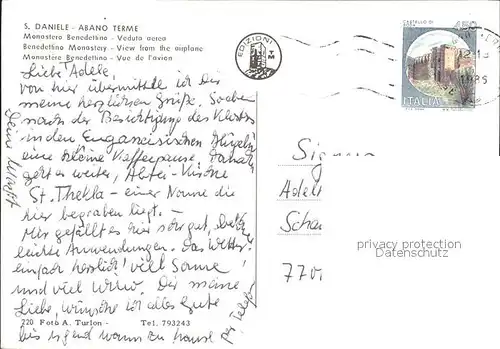 S. DANIELE - ABANO TERME
Monastero Benedettino - Veduta aerea
Benedettino Monastery - View from the airplane
Monastère Benedettino - Vue de l'avion
EDIZIONI TM
CASTELLO DI
450
ITALIA
12-13
Liebe Adele,
von hier übermittle ich Dir
meine herzlichen Grüße. Soeben
nach der Besichtigung des Klosters
in den Euganeischen Hügeln
eine kleine Kaffeepause, danach
geht es weiter, Abtei-Kirche
St. Thekla - einer Nonne die
hier begraben liegt. -
Mir gefällt es hier sehr gut,
leichte Anwendungen. Das Wetter
einfach herrlich! viel Sonne
und viel Dir meine
Liebe, wünsche ich alles Gute
bis irgend wann zu hause
per Telefon
Deine
Sign
Adel
Scha
770
privacy protection
Datenschutz
220 Foto A. Turlon - Tel. 793243